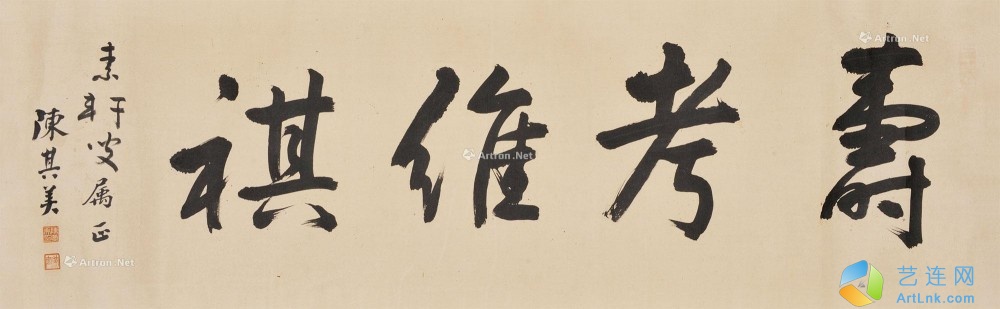 壽考維祺
素軒叟属正
陳其美
Artron.Net
Artron.Net
Artron.Net
Artron.Net
艺连网
ArtLnk.com